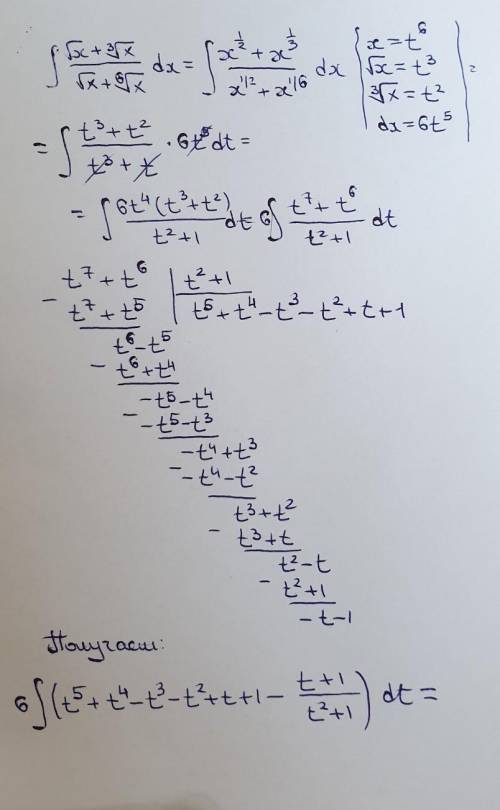 ∫ (√x + ∛x)/(√x + ⁶√x) dx = ∫ (x^(1/2) + x^(1/3))/(x^(1/2) + x^(1/6)) dx | x = t⁶ | =
√x = t³
∛x = t²
dx = 6t⁵
= ∫ (t³ + t²)/(t³ + t) · 6t⁵ dt =
= ∫ 6t⁴(t³ + t²)/(t² + 1) dt = 6∫ (t⁷ + t⁶)/(t² + 1) dt
t⁷ + t⁶ | t² + 1
− t⁷ + t⁵ | t⁵ + t⁴ − t³ − t² + t + 1
t⁶ − t⁵
− t⁶ + t⁴
−t⁵ − t⁴
− −t⁵ − t³
−t⁴ + t³
− −t⁴ − t²
t³ + t²
− t³ + t
t² − t
− t² + 1
−t − 1
Получаем:
6∫(t⁵ + t⁴ − t³ − t² + t + 1 − (t + 1)/(t² + 1)) dt =